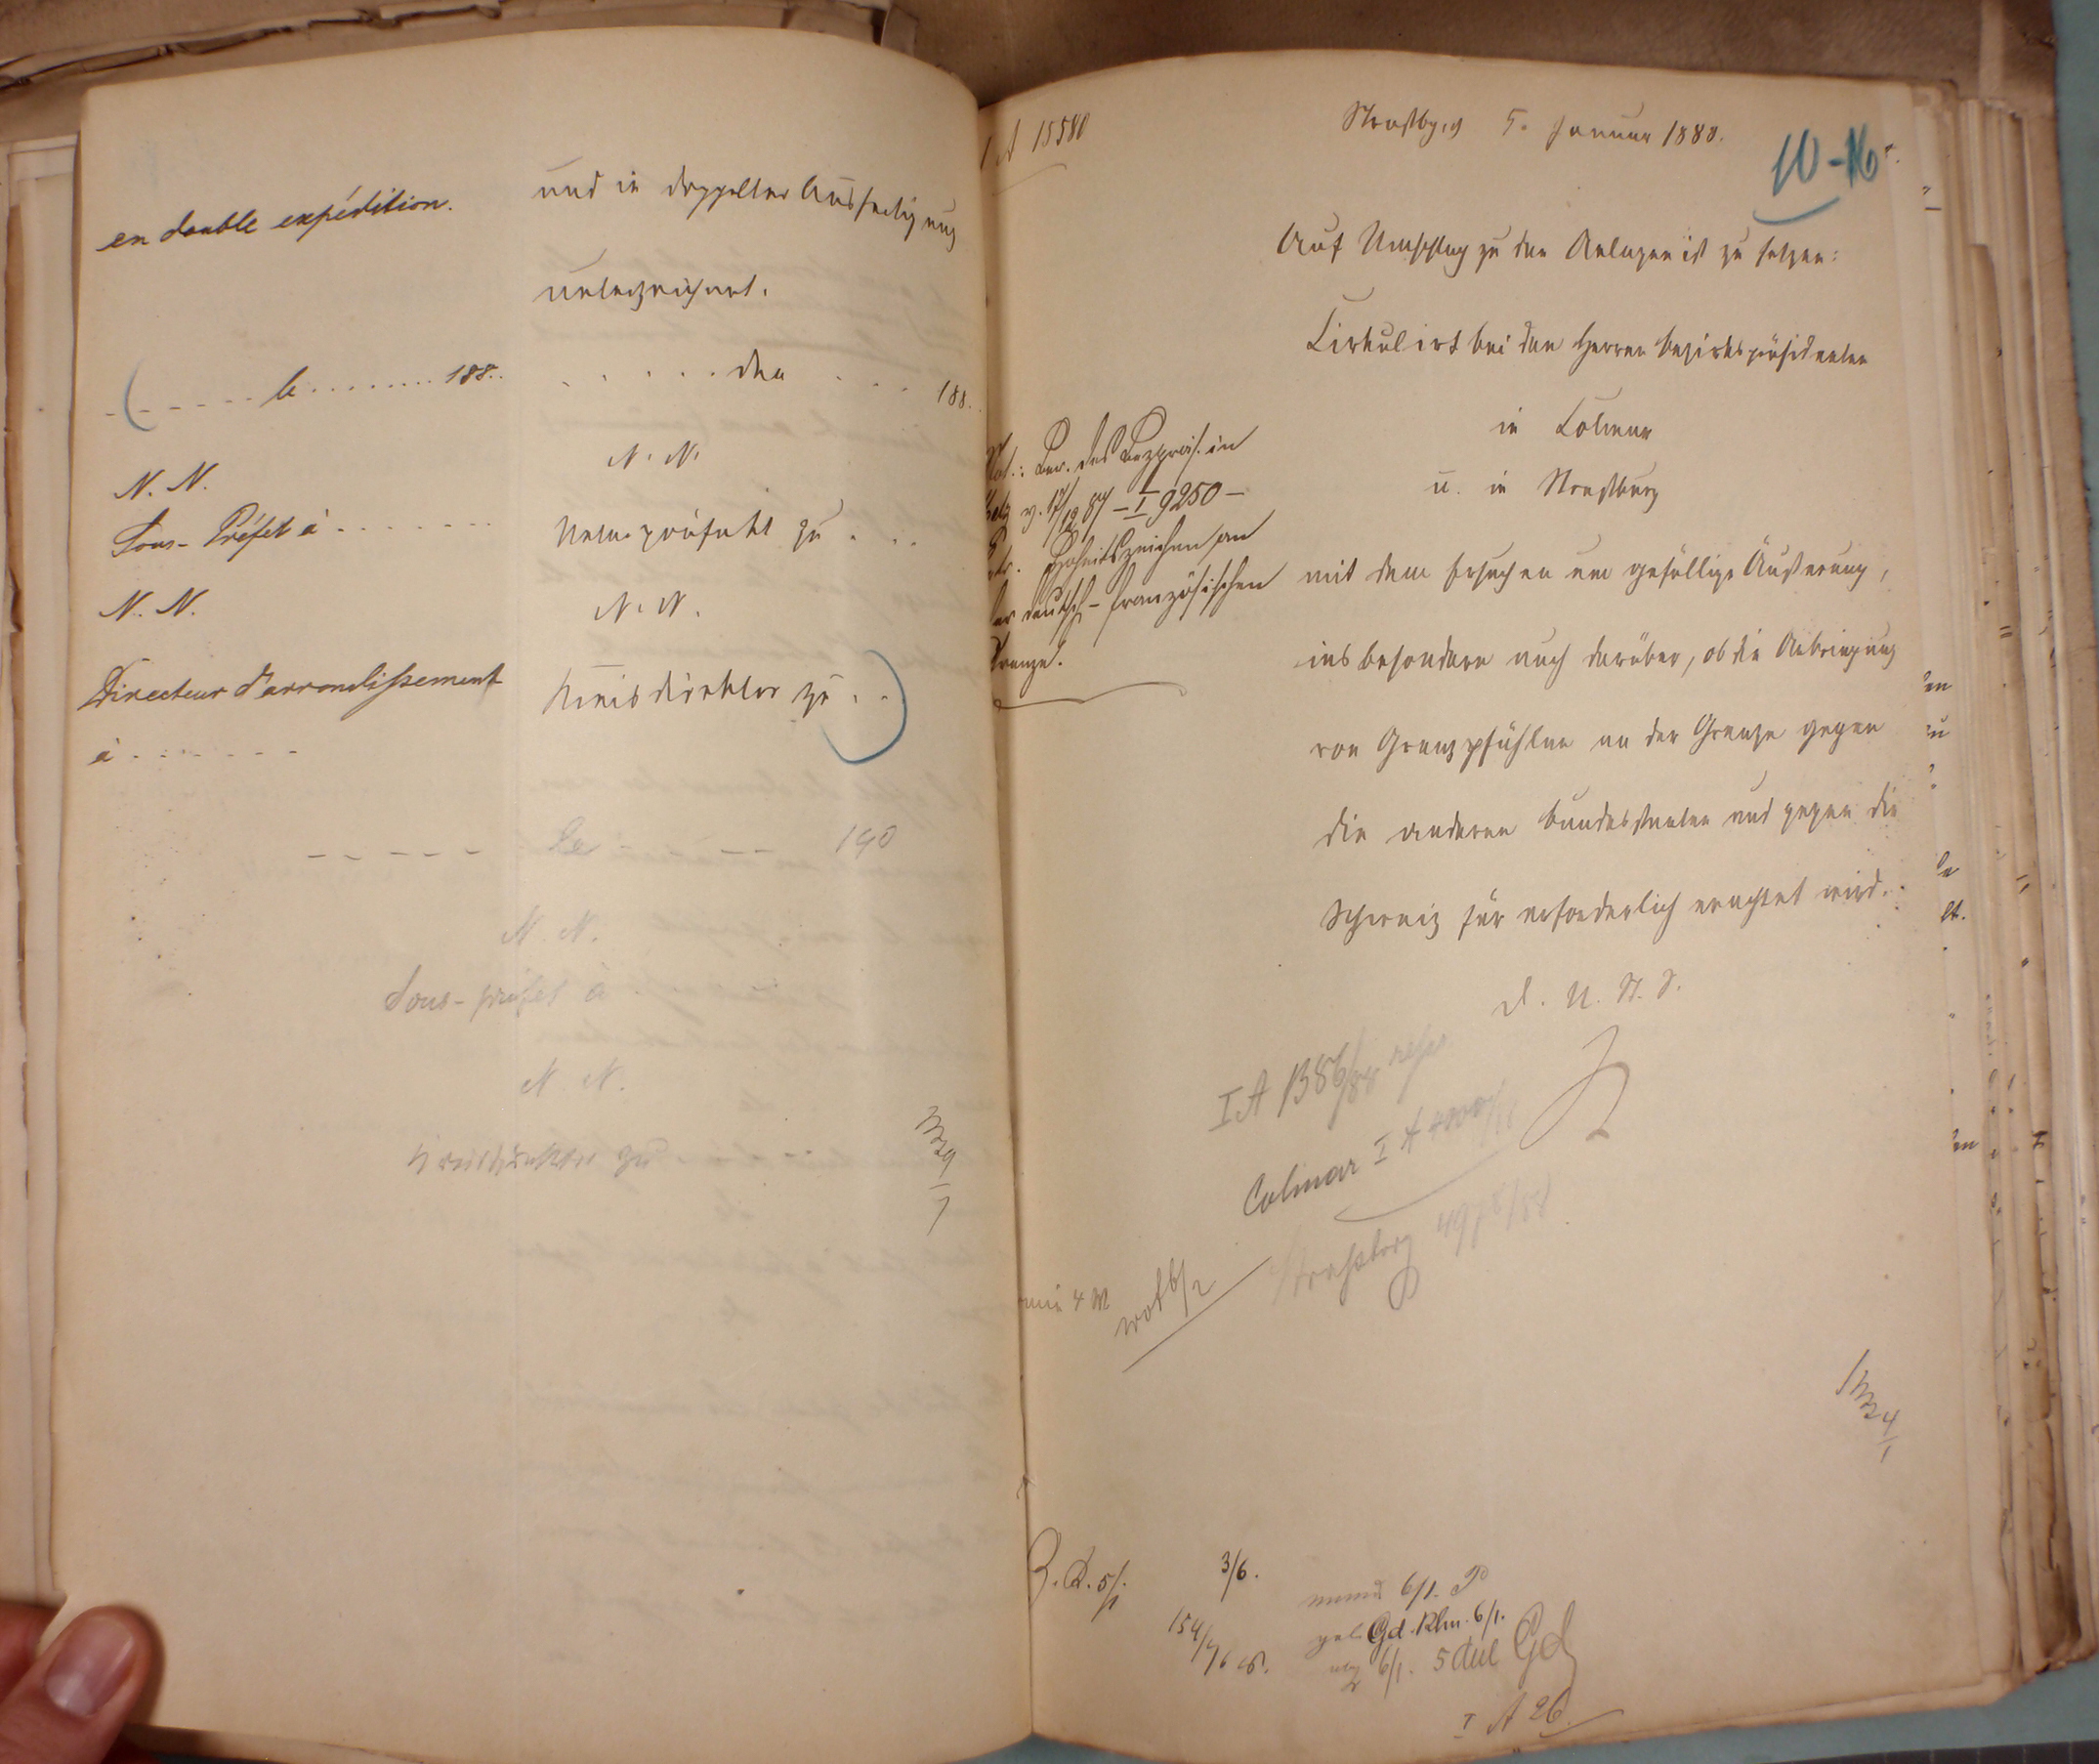 en double expédition.
und in doppelter Ausfertigung
unterzeichnet.
. . . . . . le . . . . . . . . 188..
. . . . . den . . . 188.
N. N.
Sous-Préfet à . . . . . . .
N. N.
Directeur d'arrondissement
à . . . . . . .
N. N.
Unterpräfekt zu . . .
N. N.
Kreisdirektor zu . .
_ _ _ _ _ le _ _ _ _ 190
N. N.
Sous-préfet à
N. N.
Kreisdirektor zu
I A 15580
Straßbg, d 5. Januar 1888.
10-16
Auf Umschlag zu den Anlagen ist zu setzen:
Cirkulirt bei den Herren Bezirkspräsidenten
in Colmar
u. in Straßburg
mit dem Ersuchen um gefällige Äußerung,
insbesondere auch darüber, ob die Anbringung
von Grenzpfählen an der Grenze gegen
die anderen Bundesstaaten und gegen die
Schweiz für erforderlich erachtet wird.
D. U. St. S.
Ber. des Bezpräs. in
v. 17/12 87 – I 9250 –
Hoheitszeichen an
der deutsch-französischen
Grenze.
I A 1386/88
Colmar I A
Strassburg
4 W
6/2
Z. D. 5/1.
3/6.
154/
mund 6/1.
gel. Gd. Rhm. 6/1.
6/1. 5 Anl Gd
I A 26